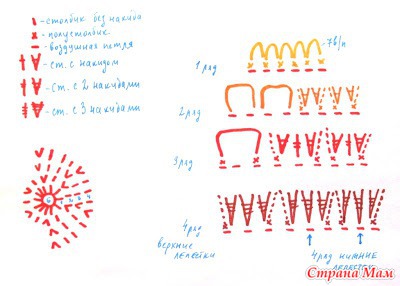 - столбик без накида
- полустолбик
- воздушная петля
- ст. с накидом
- ст. с 2 накидами
- ст. с 3 накидами
7 в/п
1 ряд
2 ряд
3 ряд
4 ряд
верхние
лепестки
4 ряд нижние
лепестки
6 1 2 3 4
Страна Мам